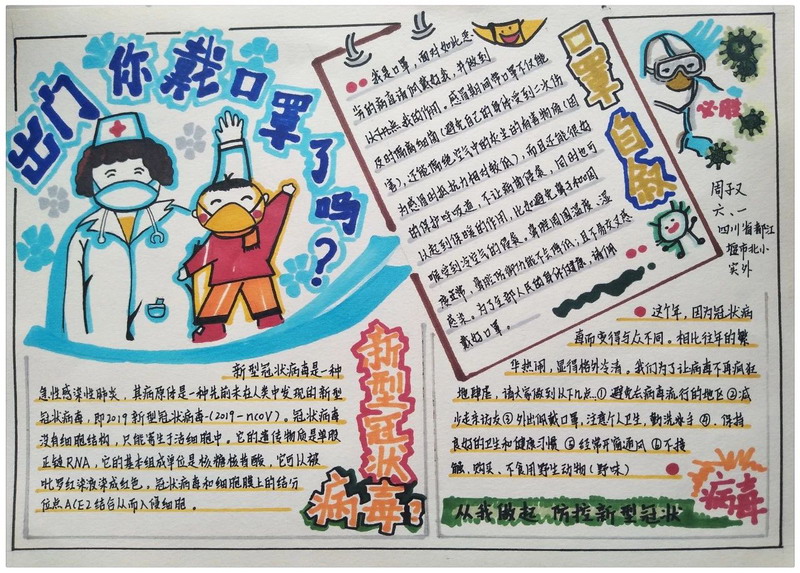 出门你戴口罩了吗?
口罩自叙
我是口罩，面对如此恶
劣的病症请佩戴好我，并做到
以下几点我的作用。感冒期间带口罩不仅能
及时隔离细菌(避免自己的身体受到二次伤
害)，还能隔绝空气中的灰尘的有害物质(因
为感冒时抵抗力相对较低)，而且还能很好
的保护呼吸道，不让病菌侵袭，同时也可
以起到保暖的作用，比如避免鼻子和咽
喉受到冷空气的侵袭。鼻腔周围温度、湿
度正常，鼻腔防御功能不会降低，且不易交叉感
感染。为了全部人民的身体健康，请你
戴好口罩。
必胜
周子又
六、一
四川省都江
堰市北小
实外
新型冠状
病毒?
新型冠状病毒是一种
急性感染性肺炎，其病原体是一种先前未在人类中发现的新型
冠状病毒，即2019新型冠状病毒(2019-nCoV)。冠状病毒
没有细胞结构，只能寄生于活细胞中。它的遗传物质是单股
正链RNA，它的基本组成单位是核糖核苷酸，它可以被
吡罗红染液染成红色。冠状病毒和细胞膜上的结合
位点ACE2结合从而入侵细胞。
这个年，因为冠状病
毒而变得与众不同。相比往年的繁
华热闹，显得格外冷清。我们为了让病毒不再疯狂
地肆虐，请大家做到以下几点.①避免去病毒流行的地区②减
少走亲访友③外出佩戴口罩，注意个人卫生，勤洗双手④，保持
良好的卫生和健康习惯⑤经常开窗通风⑥不接
触、购买、不食用野生动物(野味)
病毒
从我做起 防控新型冠状